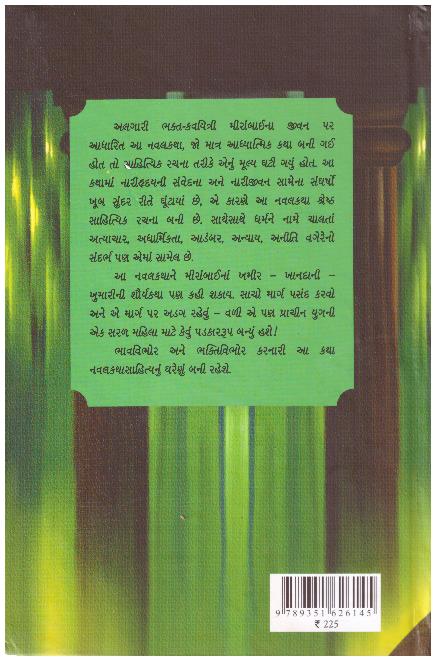 અલગારી ભક્ત-કવયિત્રી મીરાંબાઈના જીવન પર
આધારિત આ નવલકથા, જો માત્ર આધ્યાત્મિક કથા બની ગઈ
હોત તો સાહિત્યિક રચના તરીકે એનું મૂલ્ય ઘટી ગયું હોત. આ
કથામાં નારીહૃદયની સંવેદના અને નારીજીવન સામેના સંઘર્ષો
ખૂબ સુંદર રીતે ઘૂંટાયાં છે, એ કારણે આ નવલકથા શ્રેષ્ઠ
સાહિત્યિક રચના બની છે. સાથેસાથે ધર્મને નામે ચાલતાં
અત્યાચાર, અધાર્મિકતા, આડંબર, અન્યાય, અનીતિ વગેરેનો
સંદર્ભ પણ એમાં સામેલ છે.
આ નવલકથાને મીરાંબાઈનાં ખમીર - ખાનદાની -
ખુમારીની શૌર્યકથા પણ કહી શકાય. સાચો માર્ગ પસંદ કરવો
અને એ માર્ગ પર અડગ રહેવું - વળી એ પણ પ્રાચીન યુગની
એક સરળ મહિલા માટે કેવું પડકારરૂપ બન્યું હશે!
ભાવવિભોર અને ભક્તિવિભોર કરનારી આ કથા
નવલકથાસાહિત્યનું ઘરેણું બની રહેશે.
9 789351 626145
₹ 225